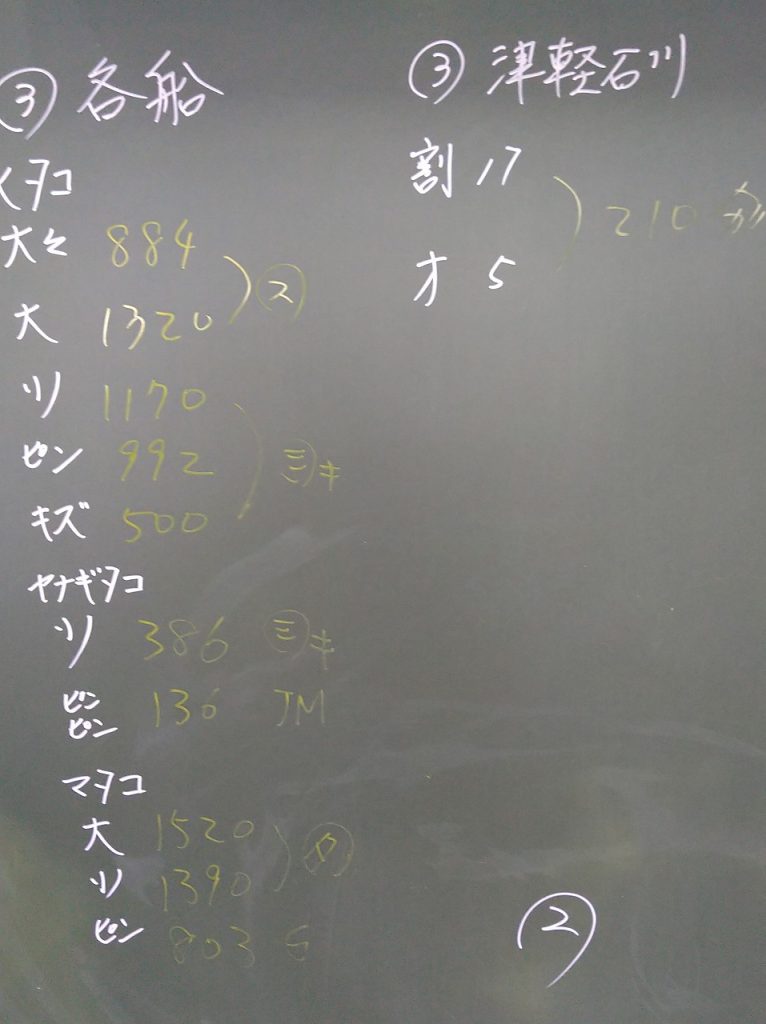 ③ 各船
タコ
大々 884
大 1320
㋜
ソ 1170
ピン 992
キズ 500
㋯キ
ヤナギタコ
ソ 386 ㋯キ
ピン
ピン 136 JM
マタコ
大 1520
ソ 1390
㋗
ピン 803 G
③ 津軽石川
割 17
オ 5
210
②